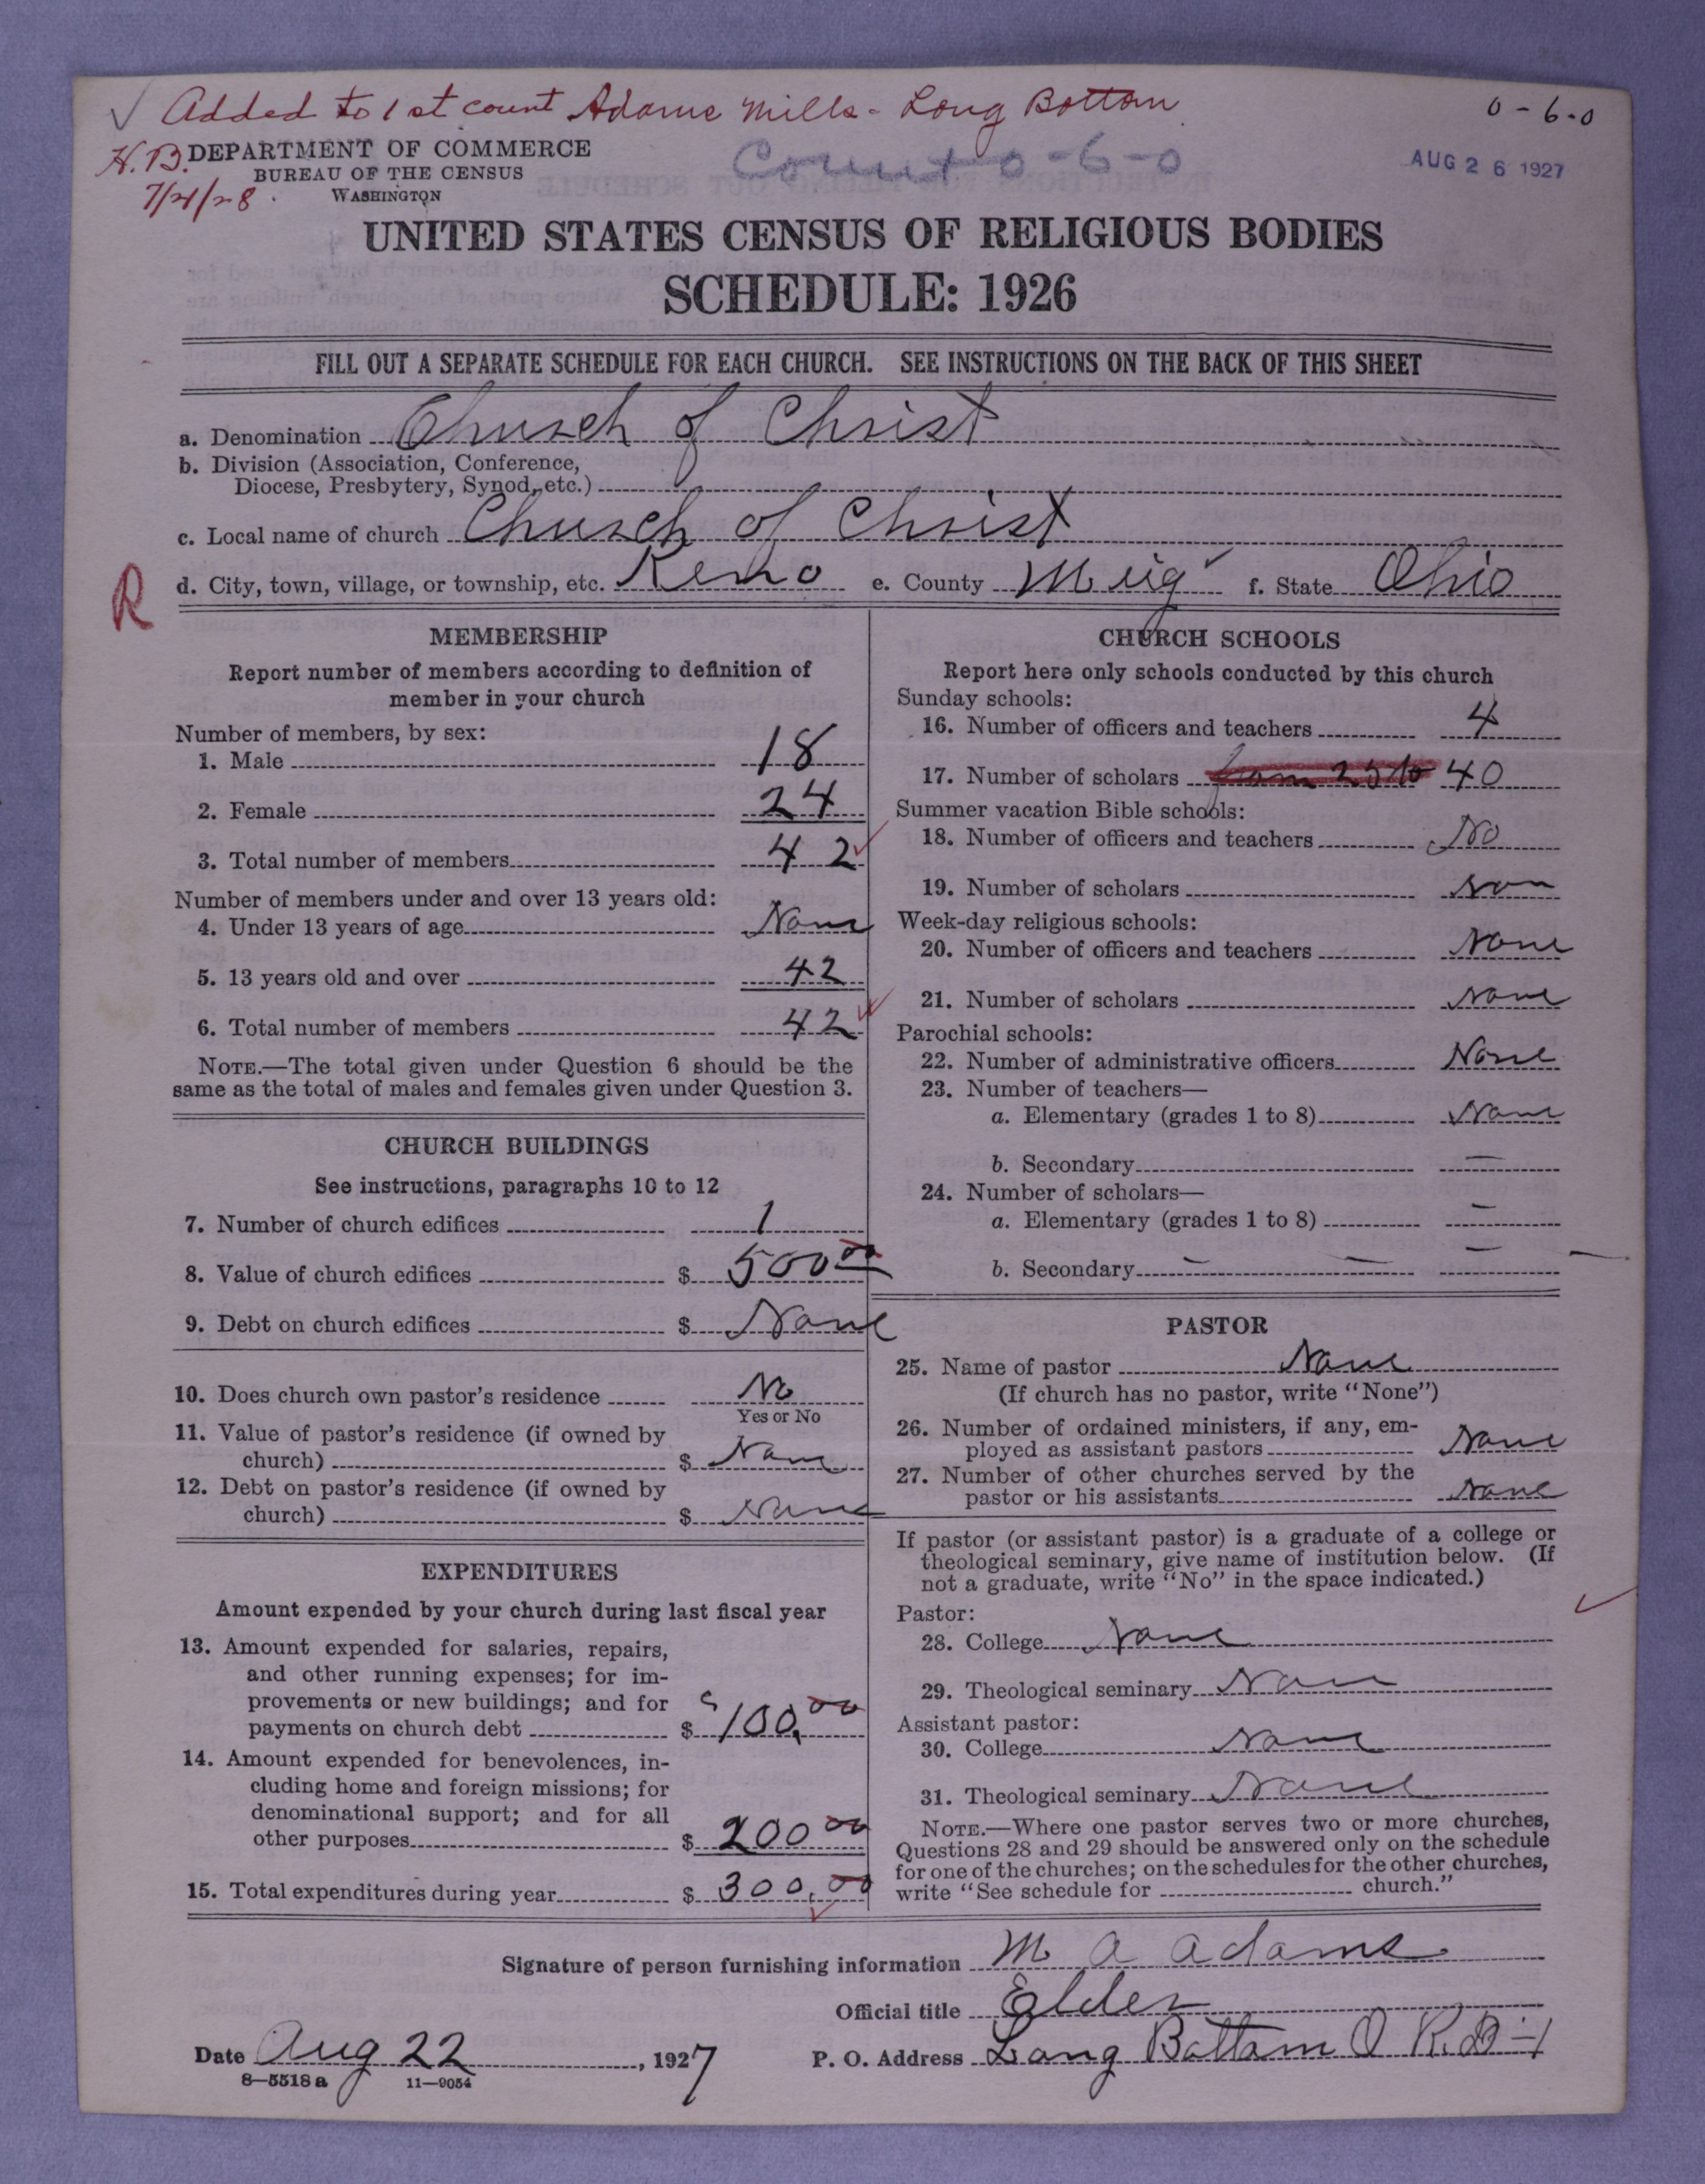 ✓ Added to 1st count Adams Mills - Long Bottom
0-6-0
H.B. DEPARTMENT OF COMMERCE
BUREAU OF THE CENSUS
7/21/28 WASHINGTON
Count 0-6-0
AUG 26 1927
UNITED STATES CENSUS OF RELIGIOUS BODIES
SCHEDULE: 1926
FILL OUT A SEPARATE SCHEDULE FOR EACH CHURCH. SEE INSTRUCTIONS ON THE BACK OF THIS SHEET
a. Denomination Church of Christ
b. Division (Association, Conference,
Diocese, Presbytery, Synod, etc.)
c. Local name of church Church of Christ
R
d. City, town, village, or township, etc. Keno e. County Meig f. State Ohio
MEMBERSHIP
Report number of members according to definition of
member in your church
Number of members, by sex:
1. Male 18
2. Female 24
3. Total number of members 42
Number of members under and over 13 years old:
4. Under 13 years of age None
5. 13 years old and over 42
6. Total number of members 42
NOTE.—The total given under Question 6 should be the
same as the total of males and females given under Question 3.
CHURCH BUILDINGS
See instructions, paragraphs 10 to 12
7. Number of church edifices 1
8. Value of church edifices $ 500 00
9. Debt on church edifices $ None
10. Does church own pastor's residence No
Yes or No
11. Value of pastor's residence (if owned by
church) $ None
12. Debt on pastor's residence (if owned by
church) $ None
EXPENDITURES
Amount expended by your church during last fiscal year
13. Amount expended for salaries, repairs,
and other running expenses; for im-
provements or new buildings; and for
payments on church debt $ 100.00
14. Amount expended for benevolences, in-
cluding home and foreign missions; for
denominational support; and for all
other purposes $ 200 00
15. Total expenditures during year $ 300.00
CHURCH SCHOOLS
Report here only schools conducted by this church
Sunday schools:
16. Number of officers and teachers 4
17. Number of scholars from 25 to 40
Summer vacation Bible schools:
18. Number of officers and teachers No
19. Number of scholars non
Week-day religious schools:
20. Number of officers and teachers None
21. Number of scholars None
Parochial schools:
22. Number of administrative officers None
23. Number of teachers—
a. Elementary (grades 1 to 8) None
b. Secondary —
24. Number of scholars—
a. Elementary (grades 1 to 8) —
b. Secondary — — —
PASTOR
25. Name of pastor None
(If church has no pastor, write "None")
26. Number of ordained ministers, if any, em-
ployed as assistant pastors None
27. Number of other churches served by the
pastor or his assistants None
If pastor (or assistant pastor) is a graduate of a college or
theological seminary, give name of institution below. (If
not a graduate, write "No" in the space indicated.)
Pastor:
28. College None
29. Theological seminary None
Assistant pastor:
30. College None
31. Theological seminary None
NOTE.—Where one pastor serves two or more churches,
Questions 28 and 29 should be answered only on the schedule
for one of the churches; on the schedules for the other churches,
write "See schedule for church."
Signature of person furnishing information M A Adams
Official title Elder
Date Aug 22, 1927 P. O. Address Long Bottom O R.D-1
8-5518a 11-9054